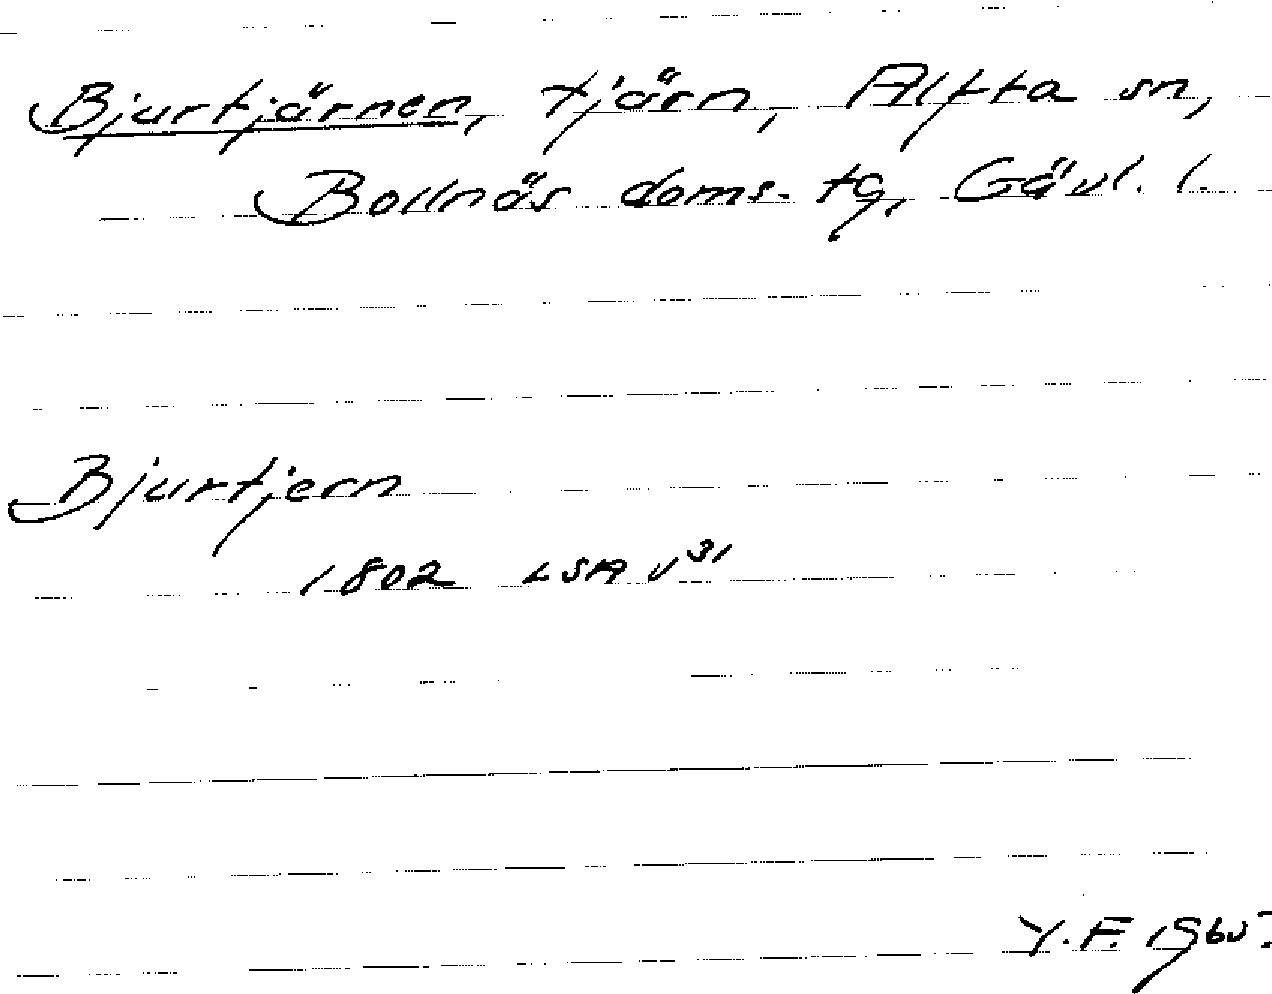 Bjurtjärnen, tjärn, Alfta sn,
Bollnäs doms. tg, Gävl. l.
Bjurtjern
1802 LSA v 31
Y. F. 1965.